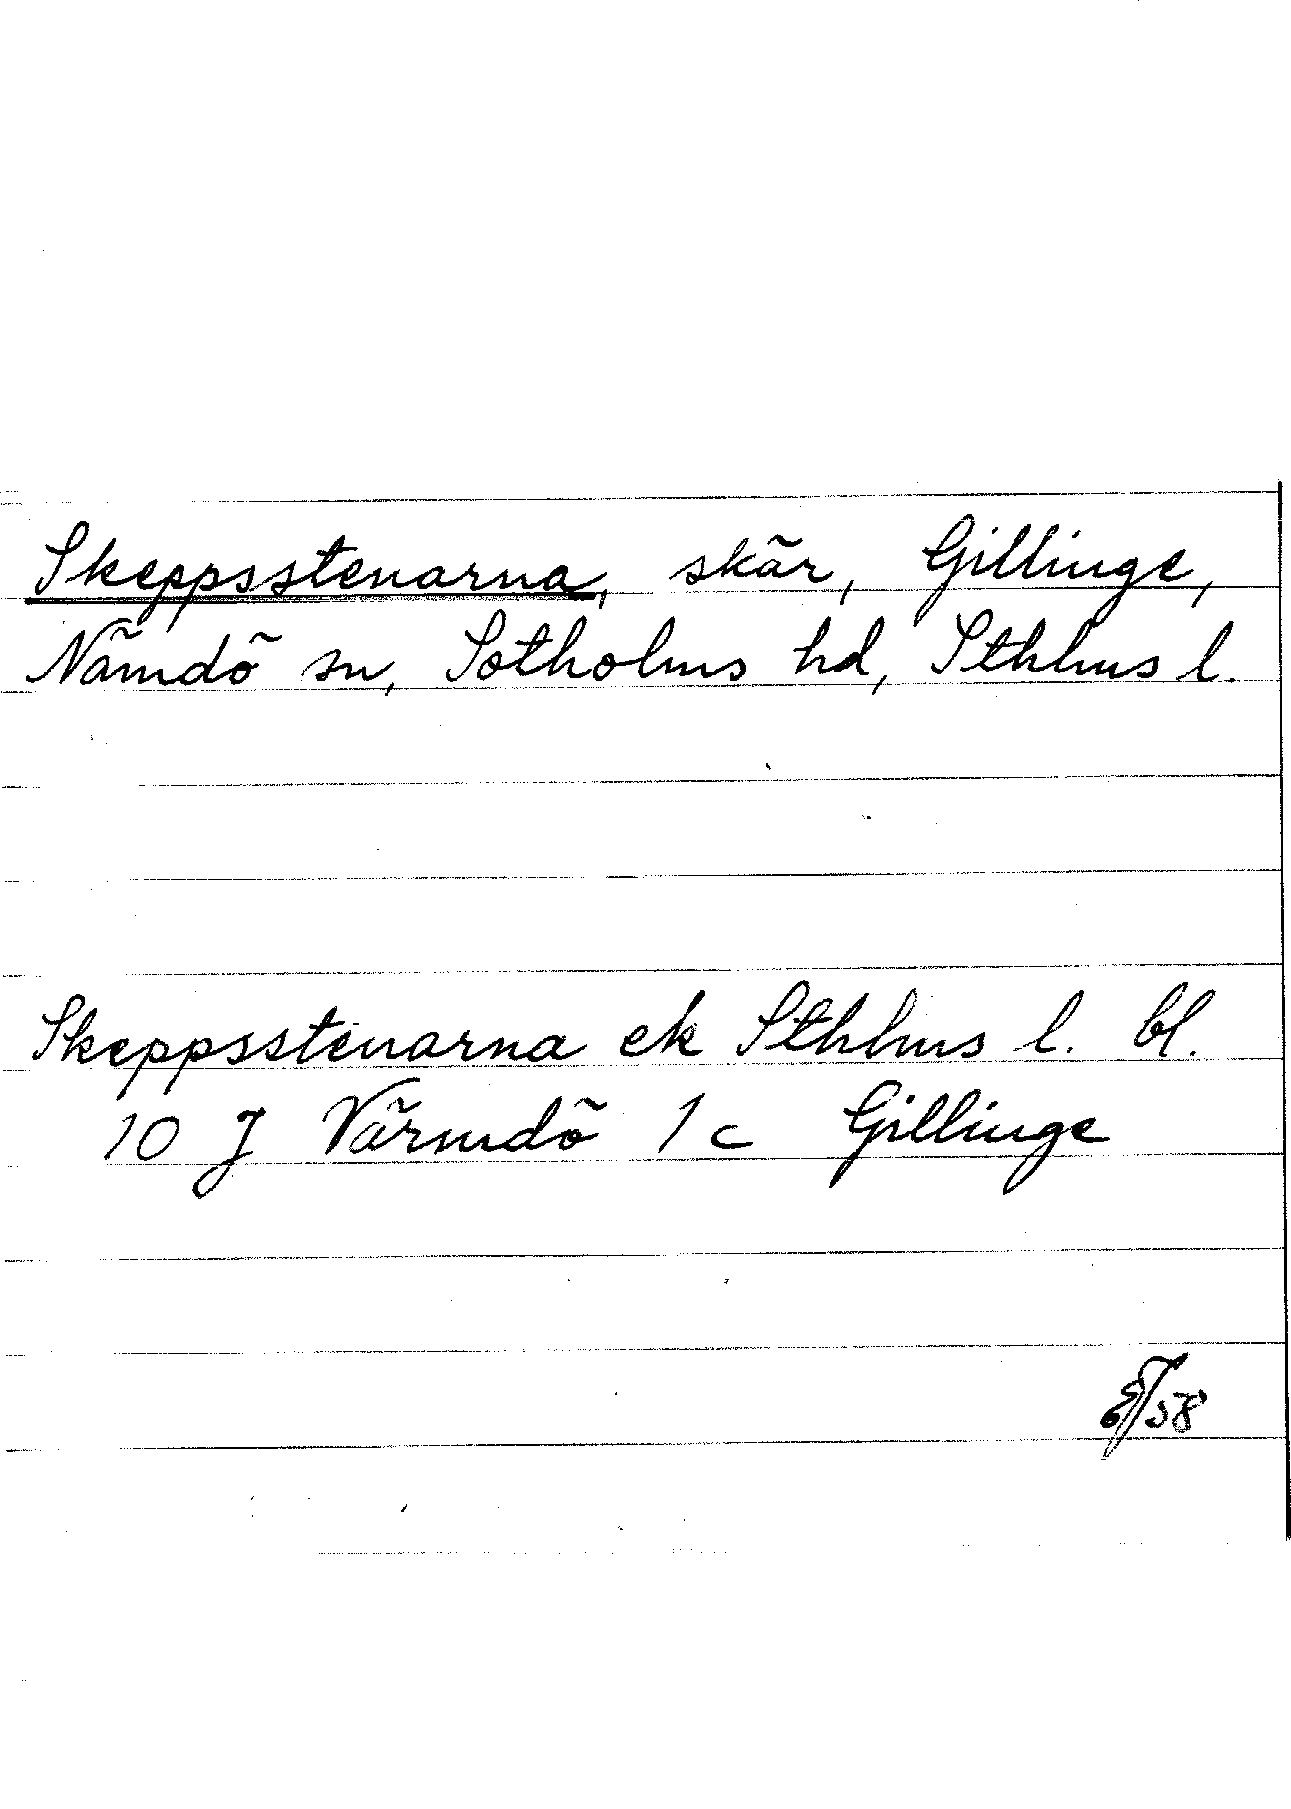 Skeppsstenarna, skär, Gillinge,
Nämdö sn, Sotholms hd, Sthlms l.
Skeppsstenarna ek Sthlms l. bl.
10 J Värmdö 1 c Gillinge
/58